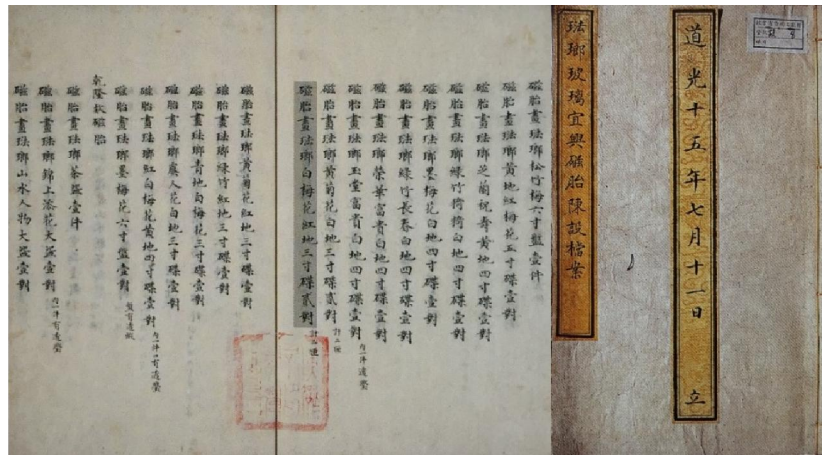 道光十五年七月十一日 立
琺瑯玻璃宜興磁胎陳設檔案
磁胎畫琺瑯松竹梅六寸盤壹件
磁胎畫琺瑯黃地紅梅花五寸碟壹對
磁胎畫琺瑯芝蘭祝壽黃地四寸碟壹對
磁胎畫琺瑯綠竹猗猗白地四寸碟壹對
磁胎畫琺瑯墨梅花白地四寸碟壹對
磁胎畫琺瑯綠竹長春白地四寸碟壹對
磁胎畫琺瑯榮華富貴白地四寸碟壹對
磁胎畫琺瑯玉堂富貴白地四寸碟壹對 內一件有璺
磁胎畫琺瑯黃菊花白地三寸碟貳對 計二匣
磁胎畫琺瑯白梅花紅地三寸碟貳對 計二匣
磁胎畫琺瑯黃菊花紅地三寸碟壹對
磁胎畫琺瑯綠竹紅地三寸碟壹對
磁胎畫琺瑯青地白梅花三寸碟壹對
磁胎畫琺瑯虞人花白地三寸碟壹對
磁胎畫琺瑯紅白梅花黃地四寸碟壹對
磁胎畫琺瑯墨梅花六寸盤壹對
乾隆款磁胎
磁胎畫琺瑯茶盅壹件
磁胎畫琺瑯錦上添花大盌壹對
磁胎畫琺瑯山水人物大盌壹對